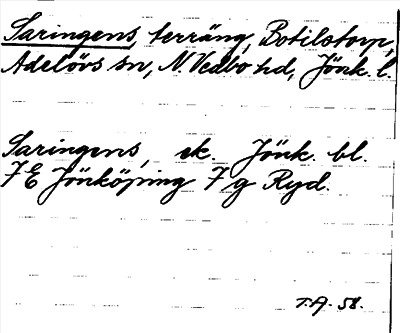 Saringens, terräng, Botilstorp,
Adelövs sn, N. Vedbo hd, Jönk. l.
Saringens, ek. Jönk. bl.
7E Jönköping 7g Ryd.
T.A. 58.